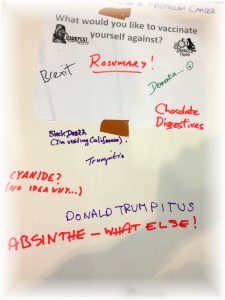 MACMILLAN CANCER
What would you like to vaccinate
yourself against?
Brexit
ROSEMARY!
Dementia...
Chocolate
Digestives
Black Death
(I'm visiting California).
CYANIDE?
(NO IDEA WHY...)
DONALD TRUMPITUS
ABSINTHE – WHAT ELSE!